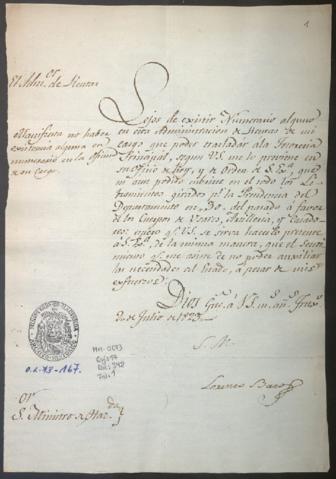 1
El Adm.or de Rentas
Manifiesta no haber
existencia alguna en
numerario en la oficina
de su cargo.
Lejos de existir Numerario alguno
en esta Administracion de Rentas de mi
cargo que poder trasladar a la Tesoreria
Principal, segun V.S. me lo previene en
su oficio de hoy, y de Orden de S.E.,
ni aun podrá cubrirse en el todo los Li-
bramientos girados p.r la Presidencia del
Departamento en 30 del pasado á favor
de los Cuerpos de
espero q.e V.S. se sirva hacerlo presente
á S.E. de la misma manera, que el Senti-
miento q.e me asiste de no poder auxiliar
las necesidades del Estado, á pesar de mis
esfuerzos.
Dios gue. á V.S. m.s an.s
de Julio de 1823.
S. M.
Lorenzo
S.or Ministro de Hac.da
MH-0093
O.L. 78-167.